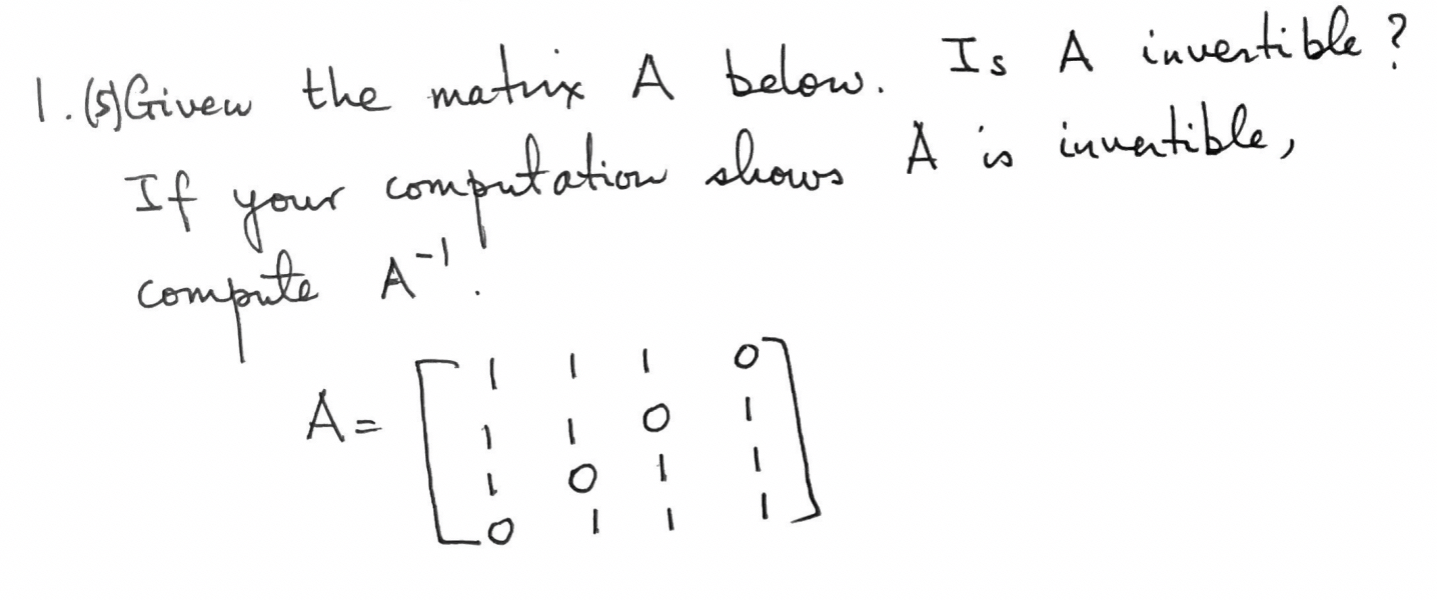 1. (5) Given the matrix A below. Is A invertible?
If your computation shows A is invertible,
compute A⁻¹.
A = [ 1 1 1 0
1 1 0 1
1 0 1 1
0 1 1 1 ]